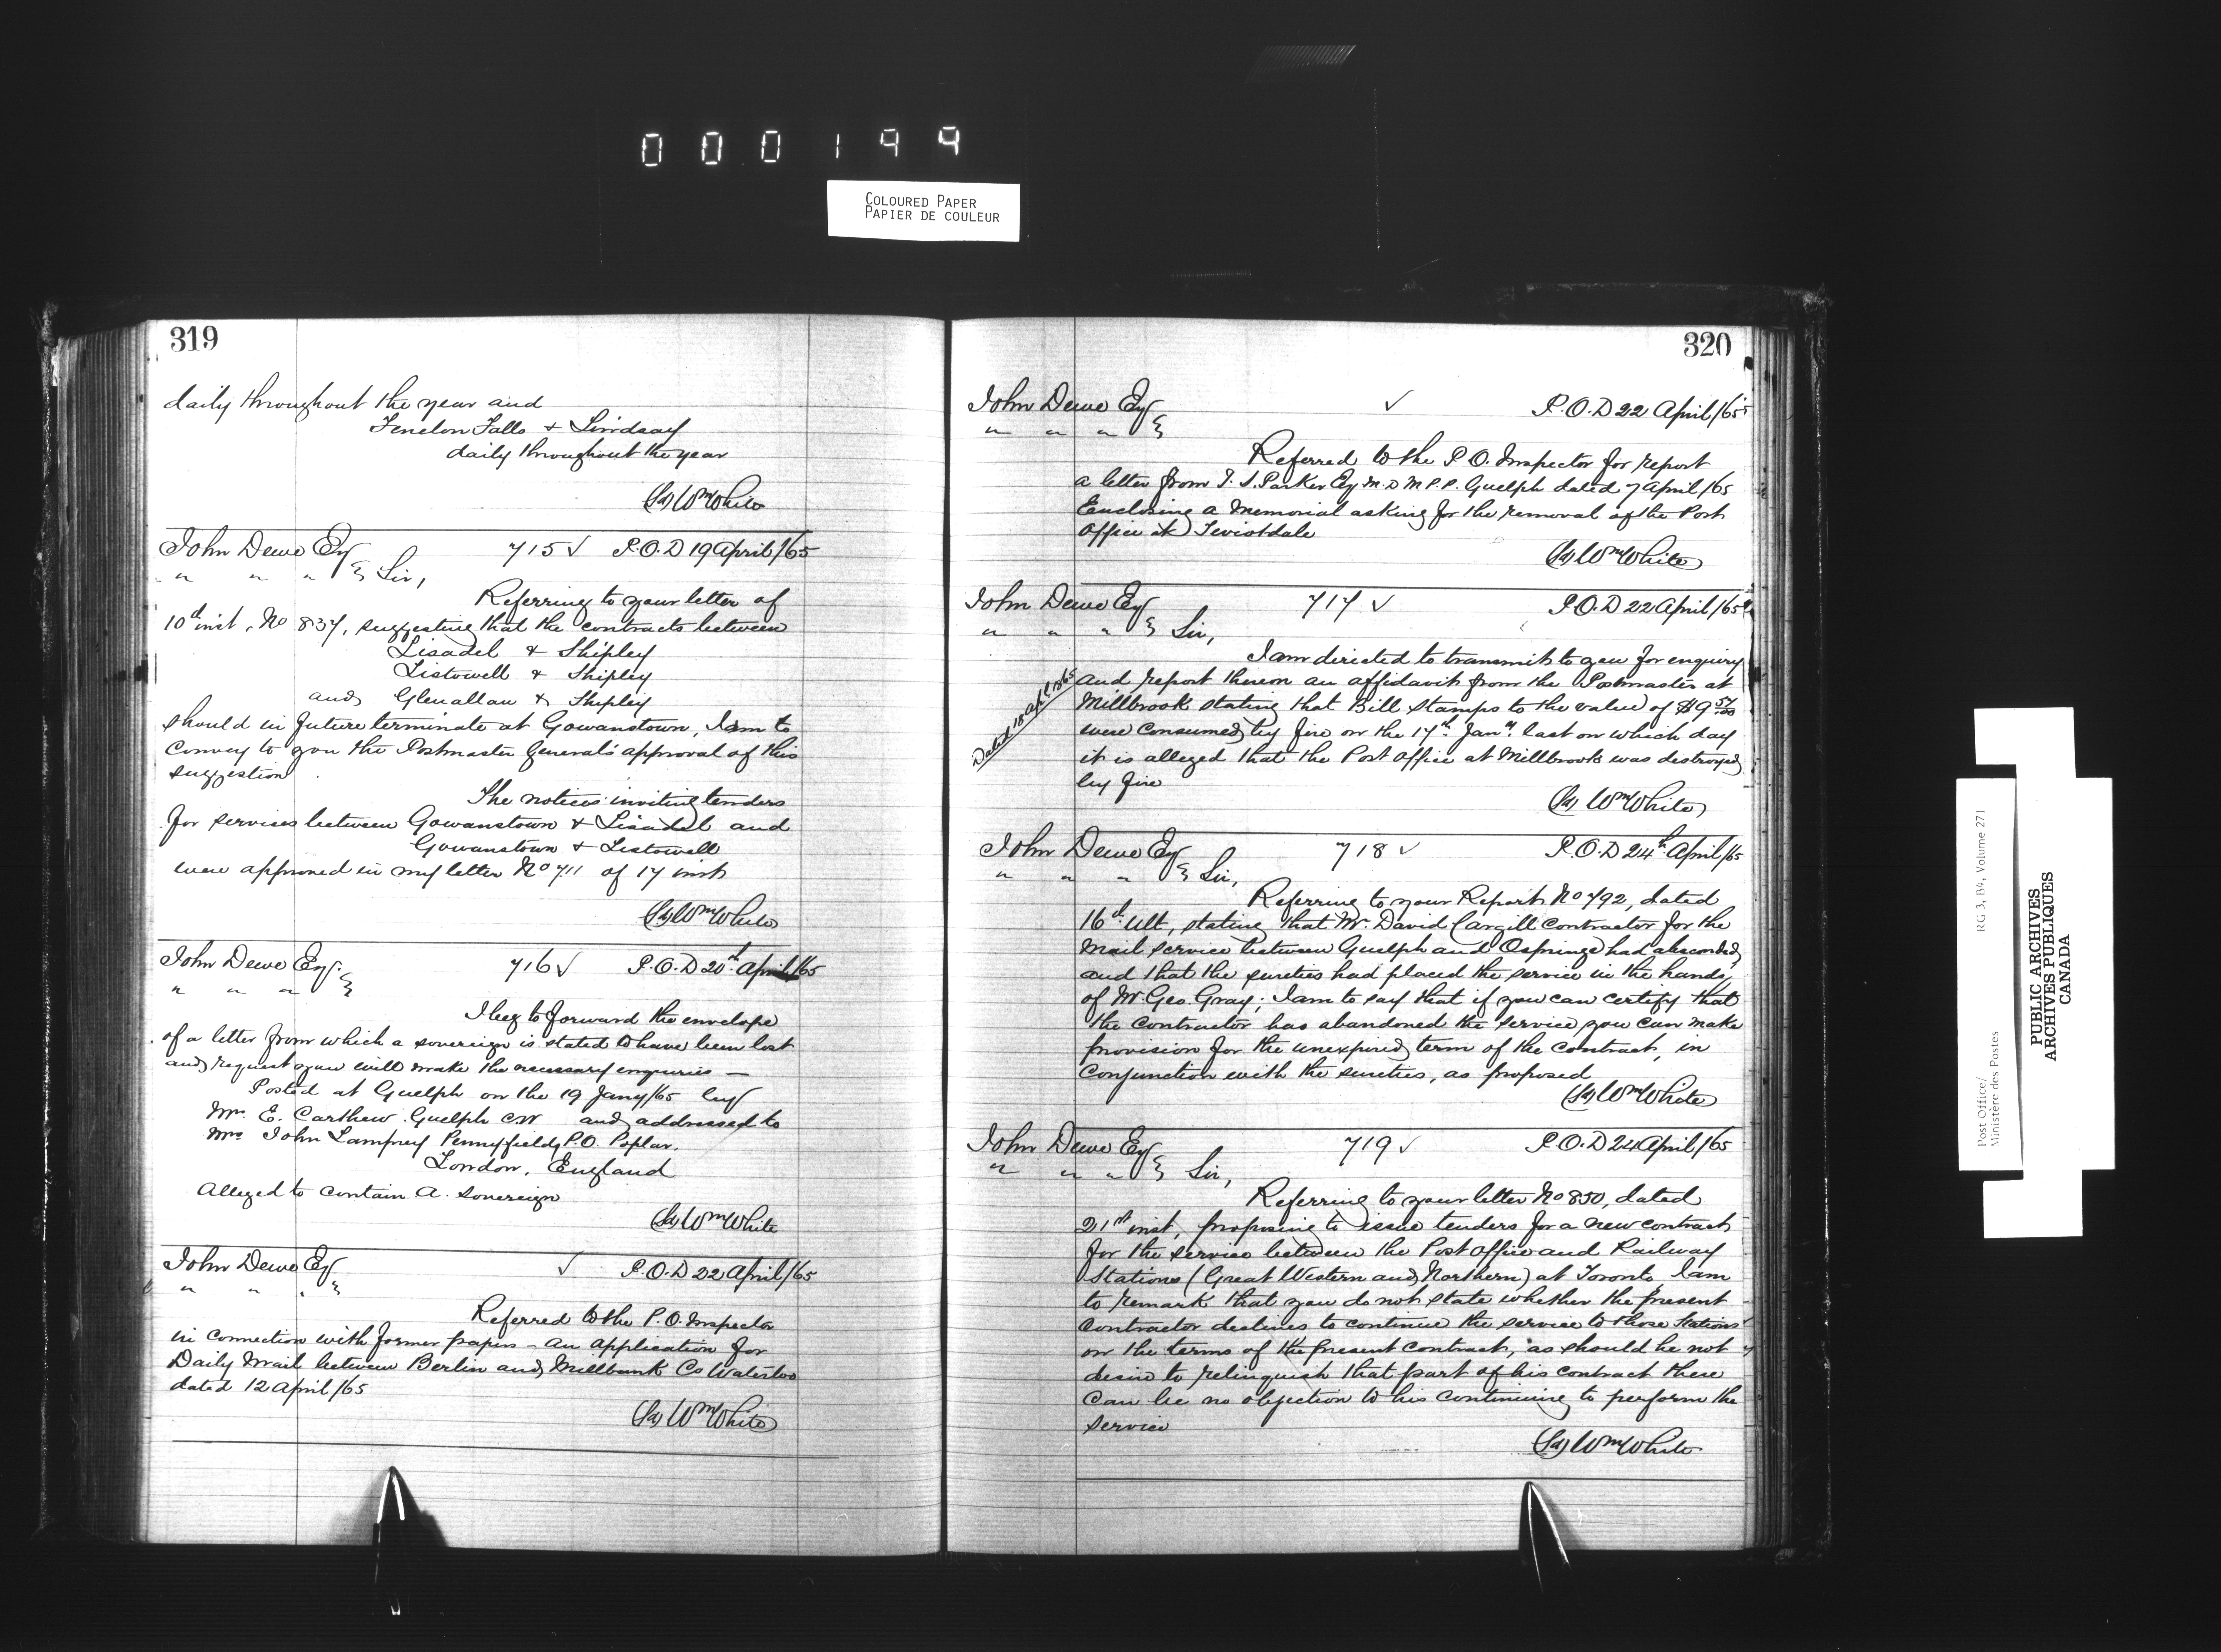 000199
COLOURED PAPER
PAPIER DE COULEUR
319
daily throughout the year and
Fenelon Falls & Lindsay
daily throughout the year
(Sd) Wm White
John Dewe Esq 715 ✓ P.O.D 19 April/65
" " " Sir,
Referring to your letter of
10th inst, No 837, suggesting that the contracts between
Lisadel & Shipley
Listowell & Shipley
and Glenallan & Shipley
should in future terminate at Gowanstown, I am to
convey to you the Postmaster General's approval of this
suggestion
The notices inviting tenders
for services between Gowanstown & Lisadel and
Gowanstown & Listowell
were approved in my letter No 711 of 17 inst
(Sd) Wm White
John Dewe Esq. 716 ✓ P.O.D 20th April/65
" " "
I beg to forward the envelope
of a letter from which a sovereign is stated to have been lost
and request you will make the necessary enquiries —
Posted at Guelph on the 19 Jany/65 by
Mr. E. Carthew Guelph C.W and addressed to
Mrs John Lamprey Pennyfields P.O. Poplar.
London, England
Alleged to contain a sovereign
(Sd) Wm White
John Dewe Esq ✓ P.O.D 22 April/65
" " "
Referred to the P.O. Inspector
in connection with former papers - an application for
Daily Mail between Berlin and Millbank Co Waterloo
dated 12 April/65
(Sd) Wm White
320
John Dewe Esq ✓ P.O.D 22 April/65
" " "
Referred to the P.O. Inspector for report
a letter from T. S. Parker Esq M.D M.P.P. Guelph dated 7 April/65
Enclosing a Memorial asking for the removal of the Post
Office at Teviotdale
(Sd) Wm White
John Dewe Esq 717 ✓ P.O.D 22 April/65
" " " Sir,
I am directed to transmit to you for enquiry
Dated 18 Apl 1865
and report thereon an affidavit from the Postmaster at
Millbrook stating that Bill Stamps to the value of $9 57/100
were consumed by fire on the 17th Jany last on which day
it is alleged that the Post Office at Millbrook was destroyed
by fire
(Sd) Wm White
John Dewe Esq 718 ✓ P.O.D 24th April/65
" " " Sir,
Referring to your Report No 792, dated
16th ult, stating that Mr. David Cargill Contractor for the
Mail service between Guelph and Ospringe had absconded
and that the sureties had placed the service in the hands
of Mr. Geo. Gray; I am to say that if you can certify that
the Contractor has abandoned the service you can make
provision for the unexpired term of the Contract, in
conjunction with the sureties, as proposed
(Sd) Wm White
John Dewe Esq 719 ✓ P.O.D 24 April/65
" " " Sir,
Referring to your letter No 850, dated
21st inst, proposing to issue tenders for a new contract
for the service between the Post Office and Railway
Stations (Great Western and Northern) at Toronto, I am
to remark that you do not state whether the present
Contractor declines to continue the service to those Stations
on the terms of the present Contract, as should he not
desire to relinquish that part of his contract there
can be no objection to his continuing to perform the
service
(Sd) Wm White
Post Office/
Ministère des Postes
RG 3, B4, Volume 271
PUBLIC ARCHIVES
ARCHIVES PUBLIQUES
CANADA